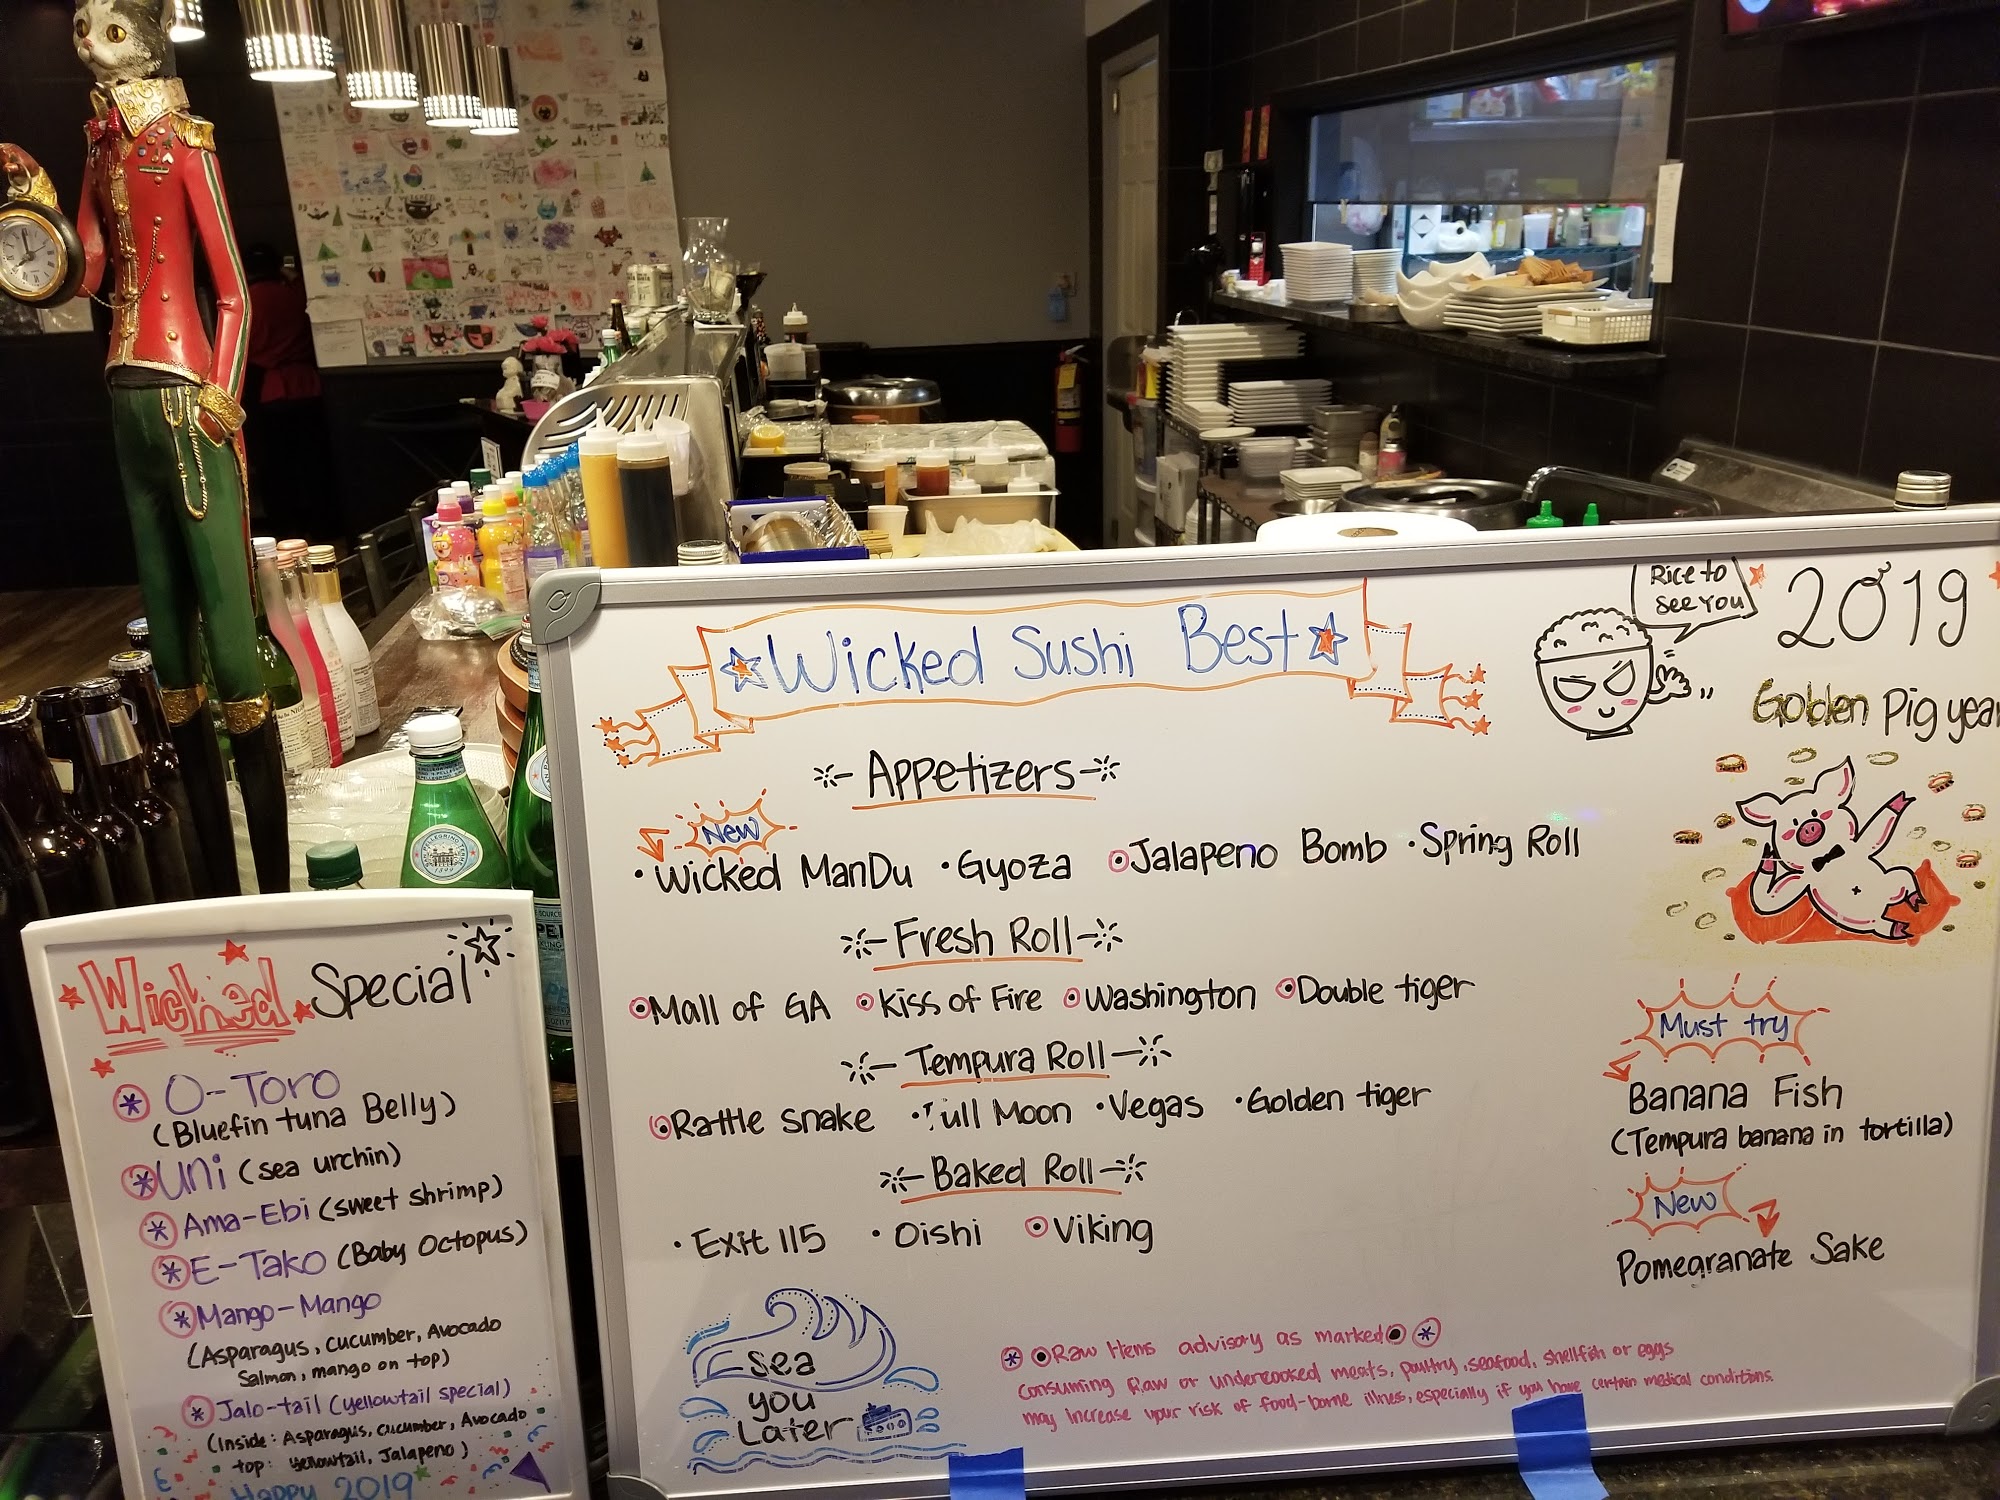 Wicked Sushi Best
Rice to
See You
2019
Golden Pig year
Appetizers
New
Wicked ManDu · Gyoza · Jalapeno Bomb · Spring Roll
Fresh Roll
Mall of GA · Kiss of Fire · Washington · Double tiger
Tempura Roll
Rattle snake · Full Moon · Vegas · Golden tiger
Baked Roll
· Exit 115 · Oishi · Viking
Must try
Banana Fish
(Tempura banana in tortilla)
New
Pomegranate Sake
sea
you
Later
Raw Items advisory as marked
Consuming Raw or undercooked meats, poultry, seafood, shellfish or eggs
may increase your risk of food-borne illness, especially if you have certain medical conditions.
Wicked Special
O-Toro
(Bluefin tuna Belly)
Uni (sea urchin)
Ama-Ebi (sweet shrimp)
E-Tako (Baby Octopus)
Mango-Mango
(Asparagus, cucumber, Avocado
Salmon, mango on top)
Jalo-tail (yellowtail special)
(Inside: Asparagus, cucumber, Avocado
top: yellowtail, Jalapeno)
Happy 2019